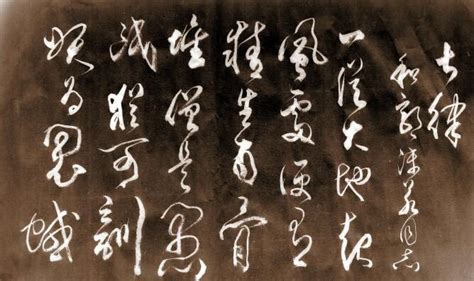 七律
和郭沫若同志
一從大地起
風雷便有
精生白骨
堆僧是愚
氓猶可訓
妖為鬼蜮